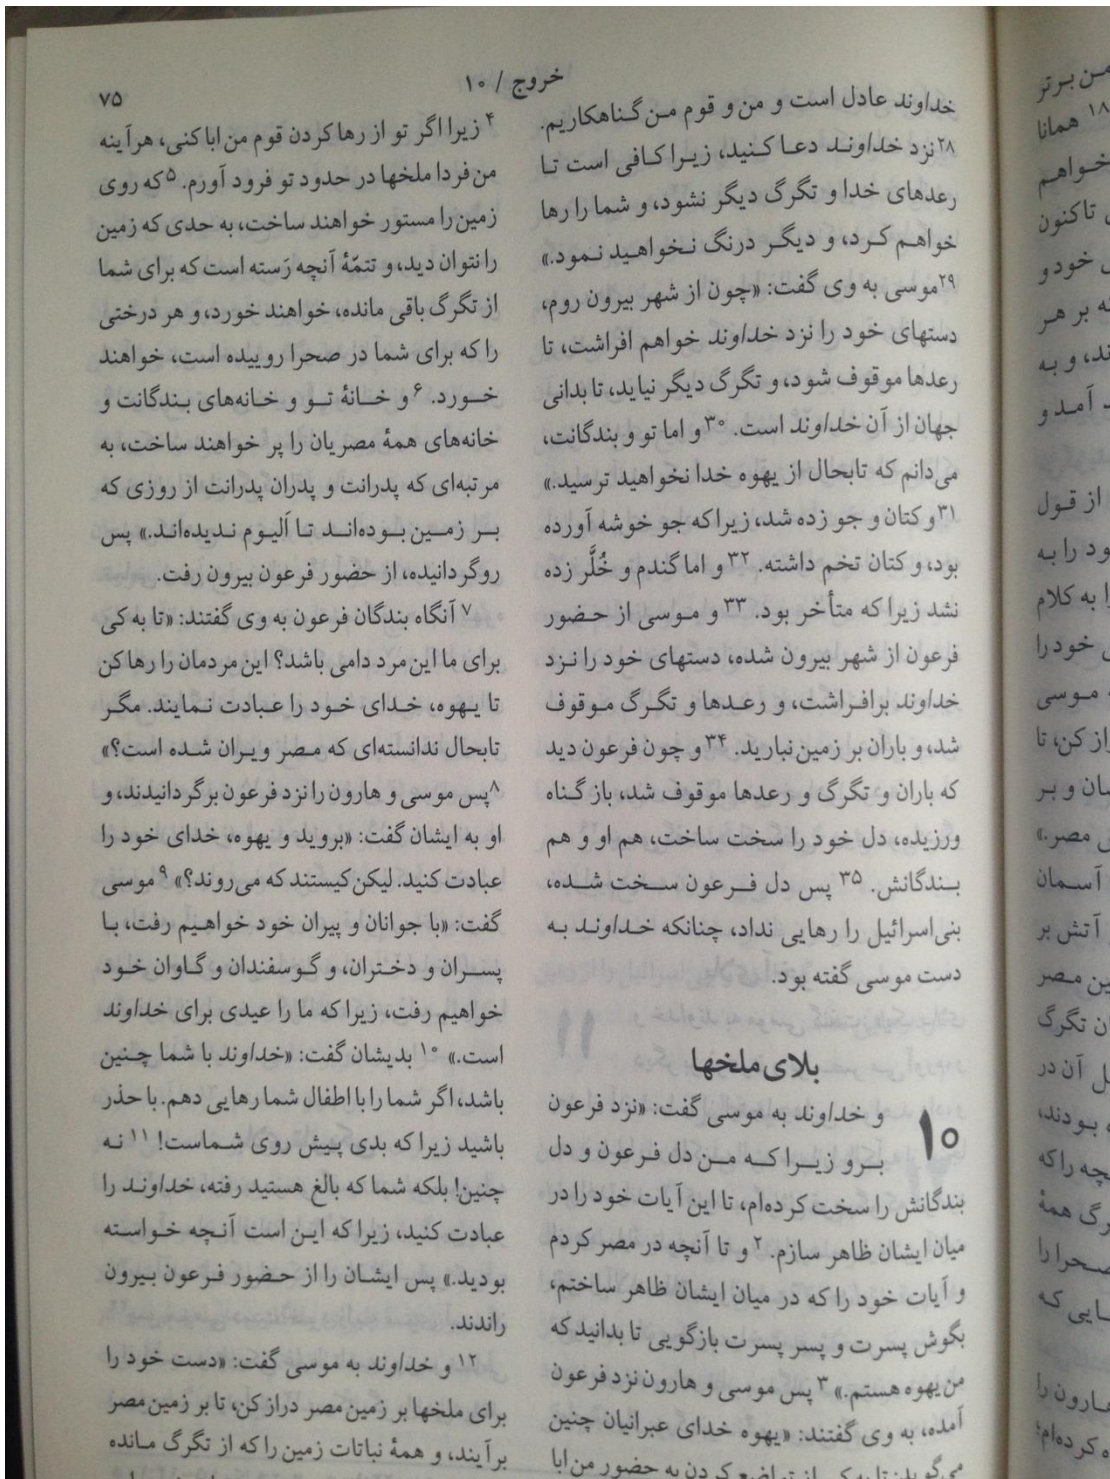 خروج / ۱۰
۷۵
خداوند عادل است و من و قوم من گناهکاریم.
۲۸ نزد خداوند دعا کنید، زیرا کافی است تا
رعدهای خدا و تگرگ دیگر نشود، و شما را رها
خواهم کرد، و دیگر درنگ نخواهید نمود.»
۲۹ موسی به وی گفت: «چون از شهر بیرون روم،
دستهای خود را نزد خداوند خواهم افراشت، تا
رعدها موقوف شود، و تگرگ دیگر نیاید، تا بدانی
جهان از آن خداوند است. ۳۰ و اما تو و بندگانت،
می‌دانم که تابحال از یهوه خدا نخواهید ترسید.»
۳۱ و کتان و جو زده شد، زیرا که جو خوشه آورده
بود، و کتان تخم داشته. ۳۲ و اما گندم و خُلَّر زده
نشد زیرا که متأخر بود. ۳۳ و موسی از حضور
فرعون از شهر بیرون شده، دستهای خود را نزد
خداوند برافراشت، و رعدها و تگرگ موقوف
شد، و باران بر زمین نبارید. ۳۴ و چون فرعون دید
که باران و تگرگ و رعدها موقوف شد، باز گناه
ورزیده، دل خود را سخت ساخت، هم او و هم
بندگانش. ۳۵ پس دل فرعون سخت شده،
بنی‌اسرائیل را رهایی نداد، چنانکه خداوند به
دست موسی گفته بود.
بلای ملخها
۱۰ و خداوند به موسی گفت: «نزد فرعون
برو زیرا که من دل فرعون و دل
بندگانش را سخت کرده‌ام، تا این آیات خود را در
میان ایشان ظاهر سازم. ۲ و تا آنچه در مصر کردم
و آیات خود را که در میان ایشان ظاهر ساختم،
بگوش پسرت و پسر پسرت بازگویی تا بدانید که
من یهوه هستم.» ۳ پس موسی و هارون نزد فرعون
آمده، به وی گفتند: «یهوه خدای عبرانیان چنین
می‌گوید: تا به کی از تواضع کردن به حضور من ابا
۴ زیرا اگر تو از رها کردن قوم من ابا کنی، هرآینه
من فردا ملخها در حدود تو فرود آورم. ۵ که روی
زمین را مستور خواهند ساخت، به حدی که زمین
را نتوان دید، و تتمّهٔ آنچه رَسته است که برای شما
از تگرگ باقی مانده، خواهند خورد، و هر درختی
را که برای شما در صحرا روییده است، خواهند
خورد. ۶ و خانهٔ تو و خانه‌های بندگانت و
خانه‌های همهٔ مصریان را پر خواهند ساخت، به
مرتبه‌ای که پدرانت و پدران پدرانت از روزی که
بر زمین بوده‌اند تا اَلیوم ندیده‌اند.» پس
روگردانیده، از حضور فرعون بیرون رفت.
۷ آنگاه بندگان فرعون به وی گفتند: «تا به کی
برای ما این مرد دامی باشد؟ این مردمان را رها کن
تا یهوه، خدای خود را عبادت نمایند. مگر
تابحال ندانسته‌ای که مصر ویران شده است؟»
۸ پس موسی و هارون را نزد فرعون برگردانیدند، و
او به ایشان گفت: «بروید و یهوه، خدای خود را
عبادت کنید. لیکن کیستند که می‌روند؟» ۹ موسی
گفت: «با جوانان و پیران خود خواهیم رفت، با
پسران و دختران، و گوسفندان و گاوان خود
خواهیم رفت، زیرا که ما را عیدی برای خداوند
است.» ۱۰ بدیشان گفت: «خداوند با شما چنین
باشد، اگر شما را با اطفال شما رهایی دهم. با حذر
باشید زیرا که بدی پیش روی شماست! ۱۱ نه
چنین! بلکه شما که بالغ هستید رفته، خداوند را
عبادت کنید، زیرا که این است آنچه خواسته
بودید.» پس ایشان را از حضور فرعون بیرون
راندند.
۱۲ و خداوند به موسی گفت: «دست خود را
برای ملخها بر زمین مصر دراز کن، تا بر زمین مصر
برآیند، و همهٔ نباتات زمین را که از تگرگ مانده